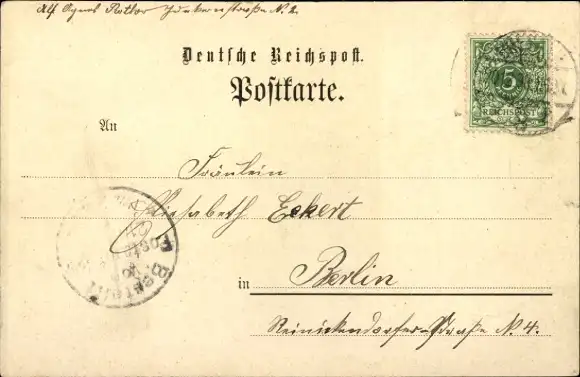 Junkerstraße N. 2.
Deutsche Reichspost.
Postkarte.
5
REICHSPOST
An
Fräulein
Elisabeth Eckert
in Berlin
Reinickendorfer-Straße N. 4.